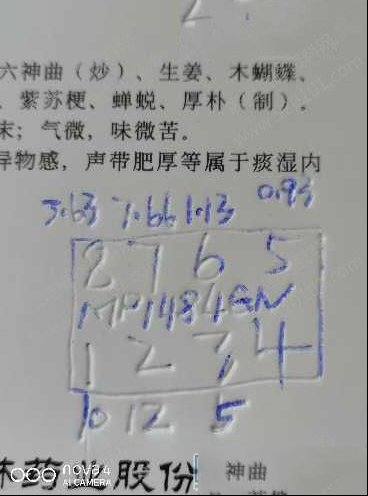 六神曲（炒）、生姜、木蝴蝶、
、紫苏梗、蝉蜕、厚朴（制）。
末；气微，味微苦。
异物感，声带肥厚等属于痰湿内
5.63 7.66 1.13 0.93
8 7 6 5
MP1484EN
1 2 3 4
10 12 5
药业股份
神曲
nova 4
AI CAMERA